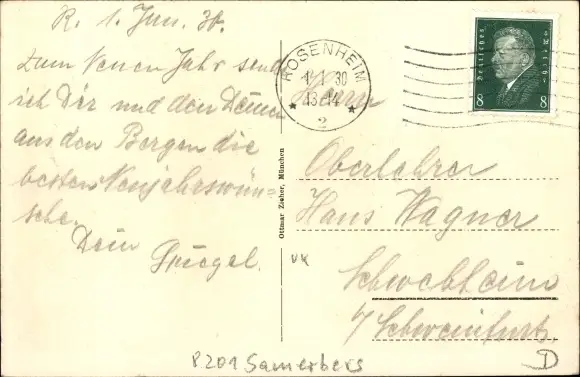 R. 1. Jan. 30.
Zum Neuen Jahr sende
ich Dir und den Deinen
aus den Bergen die
besten Neujahrswün=
sche.
Dein
Spiegel.
Ottmar Zieher, München
ROSENHEIM
1. 30
13-14
2
Deutsches Reich
8 8
Herrn
Oberlehrer
Hans Wagner
Schwebheim
b/ Schweinfurt
VK
8201 Samerberg
D